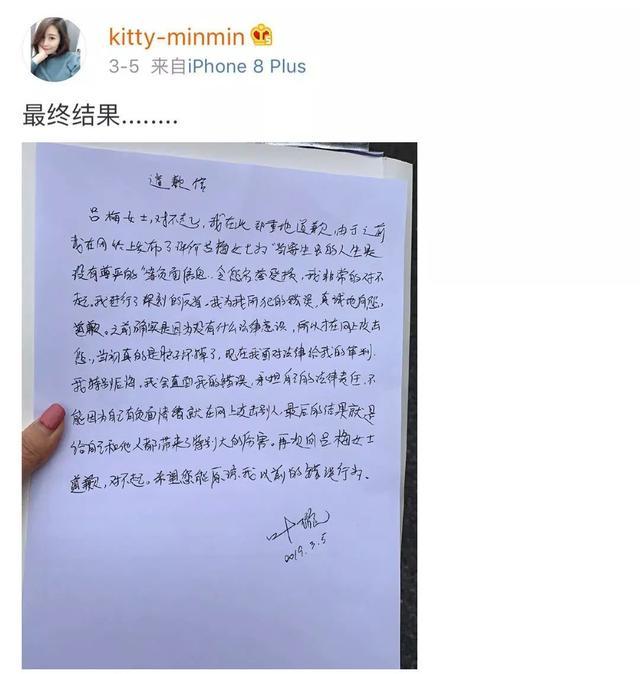 kitty-minmin
3-5 来自iPhone 8 Plus
最终结果........
道歉信
吕梅女士,对不起,我在此郑重地道歉,由于之前
我在网络上发布了评价吕梅女士为"当寄生虫的人生是
没有尊严的"等负面信息,令您名誉受损,我非常的对不
起。我进行了深刻的反省,我为我所犯的错误,真诚地向您
道歉。之前确实是因为没有什么法律意识,所以才在网上攻击
您,当初真的是脑子坏掉了,现在我面对法律给我的审判,
我特别后悔,我会直面我的错误,承担自己的法律责任,不
能因为自己有负面情绪就在网上攻击别人,最后的结果就是
给自己和他人都带来了特别大的伤害。再次向吕梅女士
道歉,对不起。希望您能原谅我以前的错误行为。
叶璇
2019.3.5